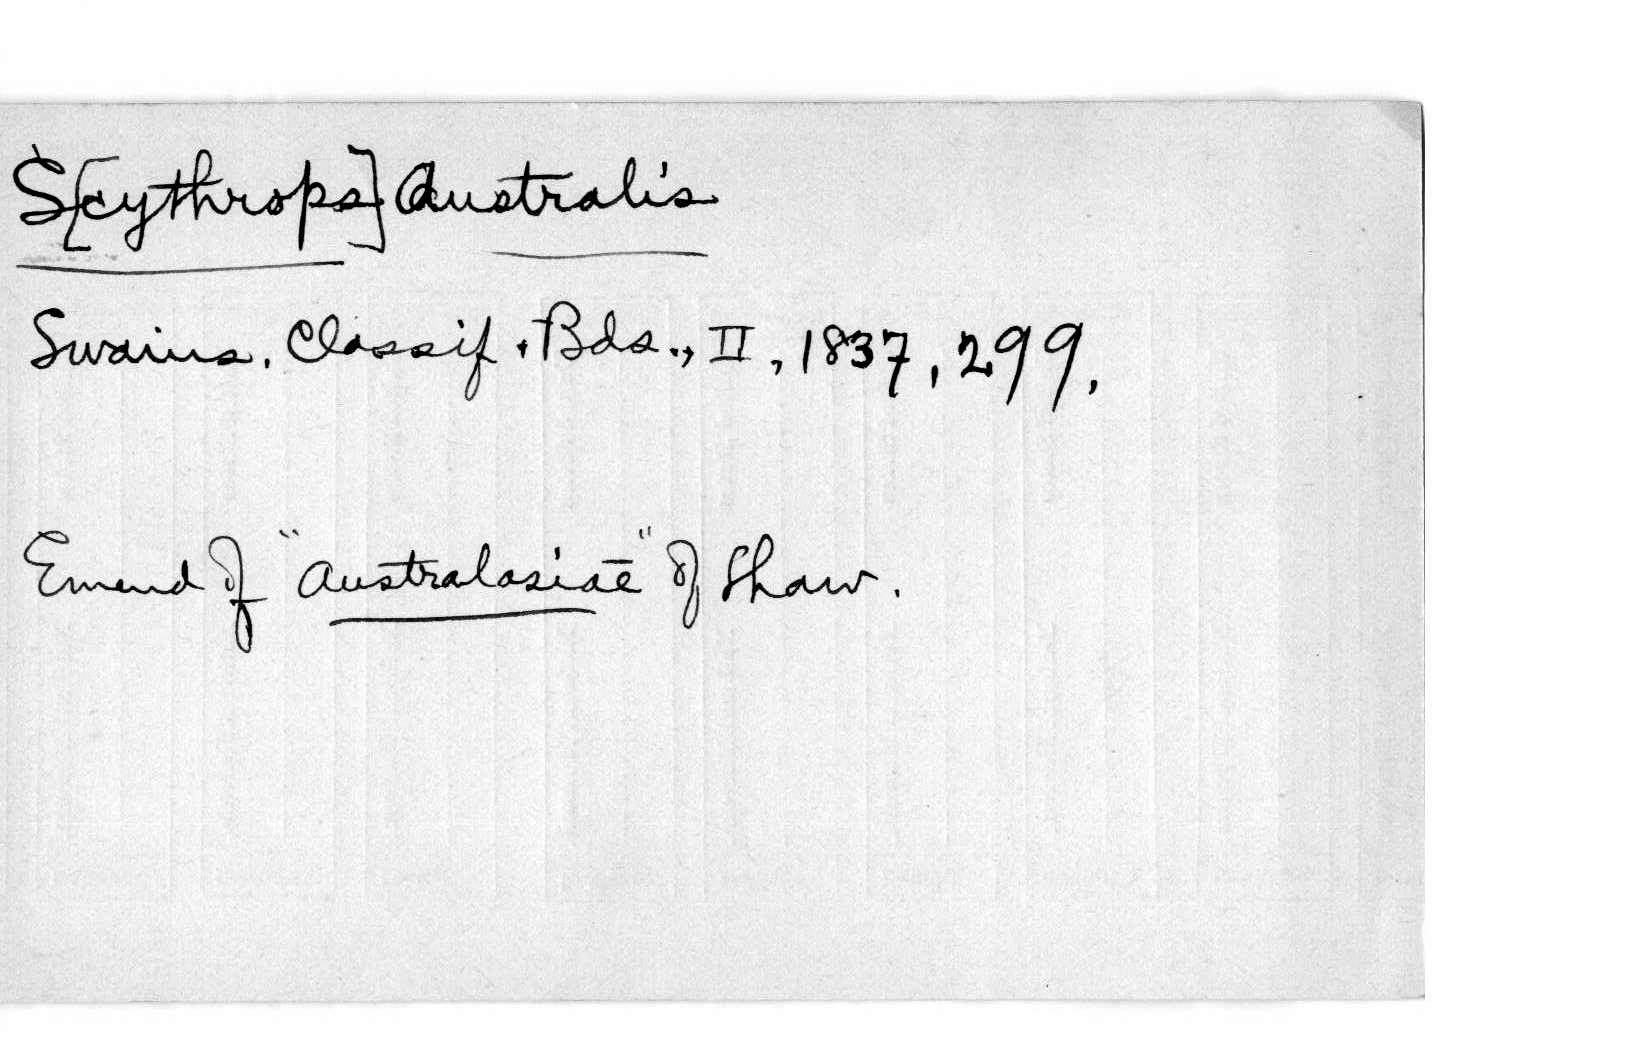 S[cythrops] Australis
Swains. Classif. Bds., II, 1837, 299.
Emend of "australasiae" of Shaw.